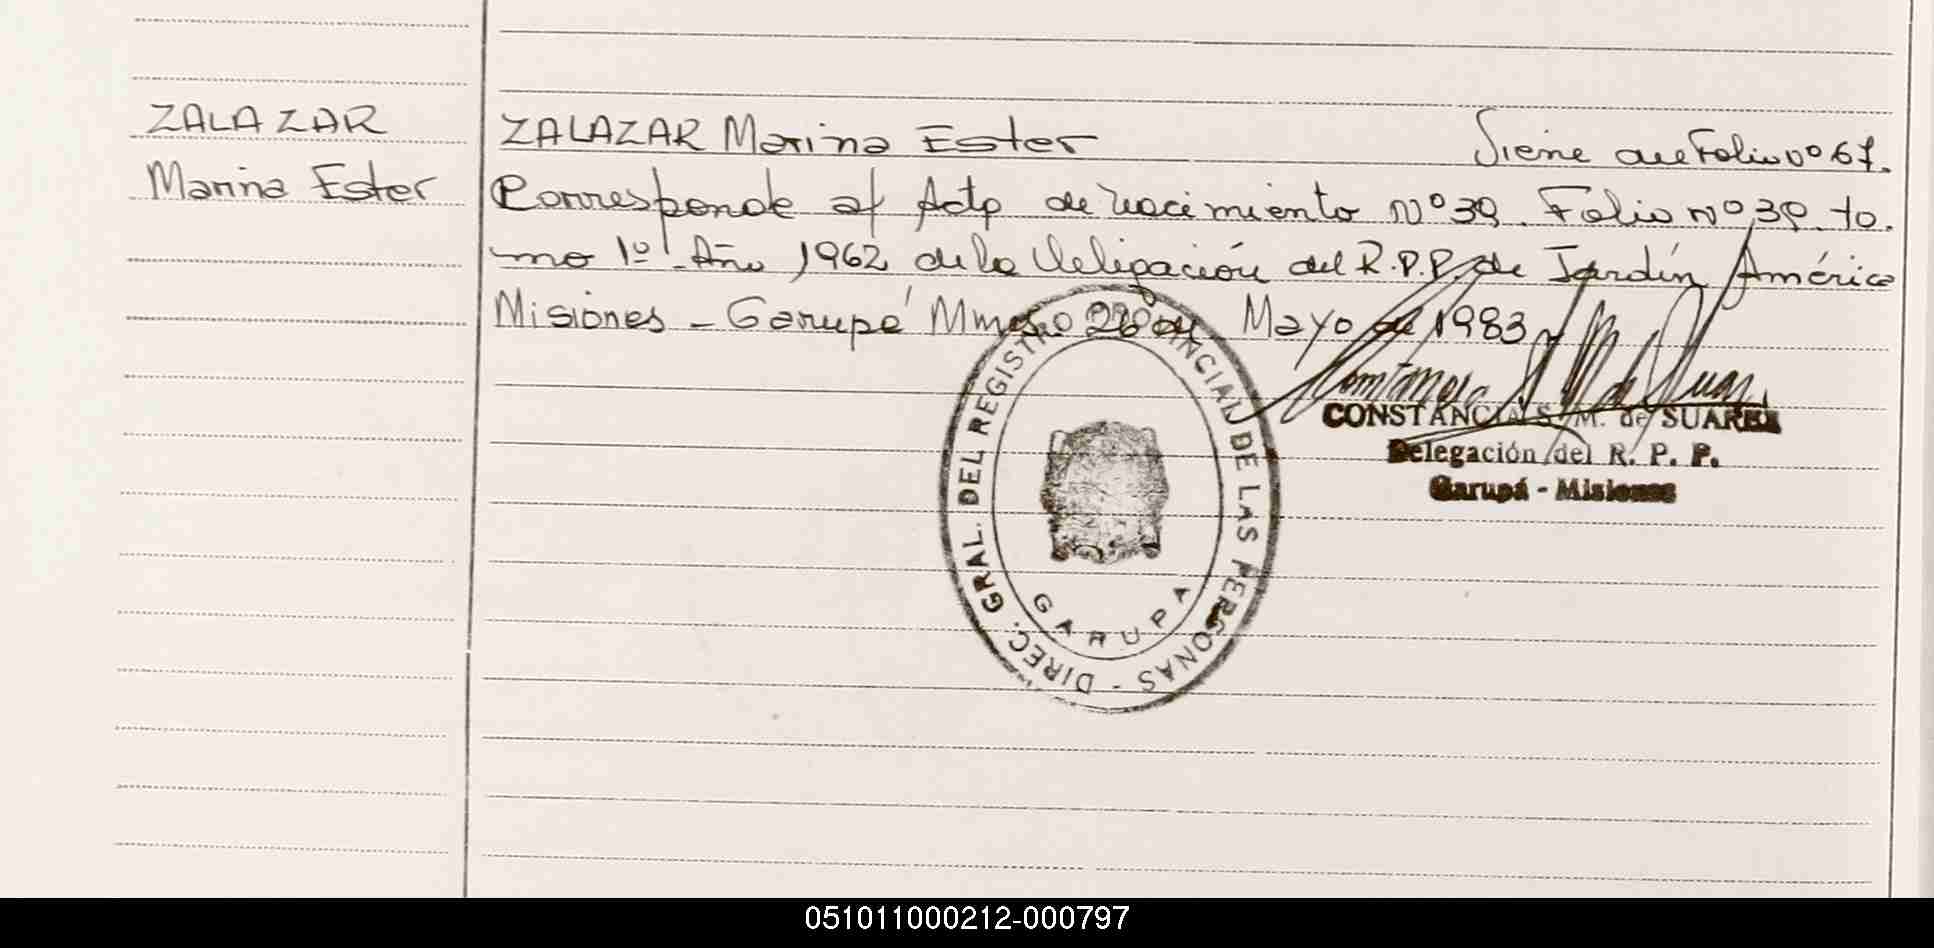 ZALAZAR
Marina Ester
ZALAZAR Marina Ester Viene de Folio nº 67.
Corresponde al Acta de Nacimiento Nº 39 Folio nº 39 to
mo 1º Año 1962 de la Delegación del R.P.P. de Jardín América
Misiones - Garupá Mnes. de Mayo de 1983
CONSTANCIA S. M. de SUAREZ
Delegación del R. P. P.
Garupá - Misiones
DIREC. GRAL. DEL REGISTRO PROVINCIAL DE LAS PERSONAS -
GARUPA
051011000212-000797